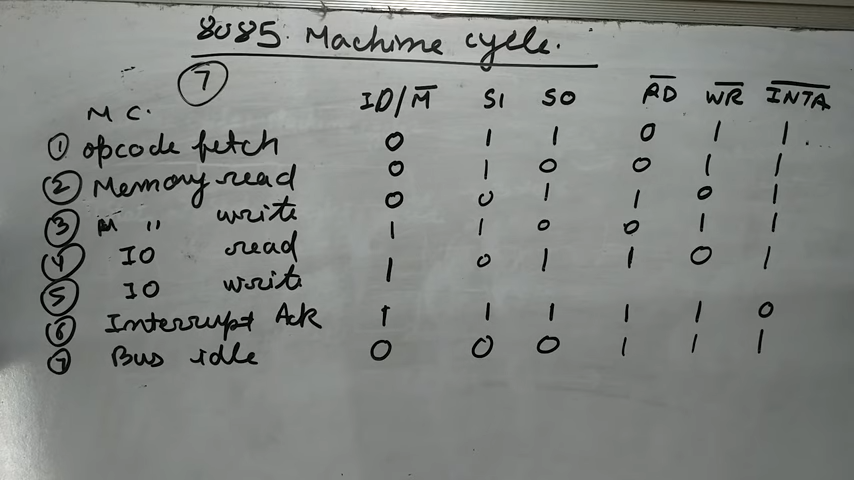 8085 Machine cycle.
7
M C. IO/M̅ S1 S0 R̅D̅ W̅R̅ I̅N̅T̅A̅
① opcode fetch 0 1 1 0 1 1
② Memory read 0 1 0 0 1 1
③ M " write 0 0 1 1 0 1
④ IO read 1 1 0 0 1 1
⑤ IO write 1 0 1 1 0 1
⑥ Interrupt Ack 1 1 1 1 1 0
⑦ Bus idle 0 0 0 1 1 1